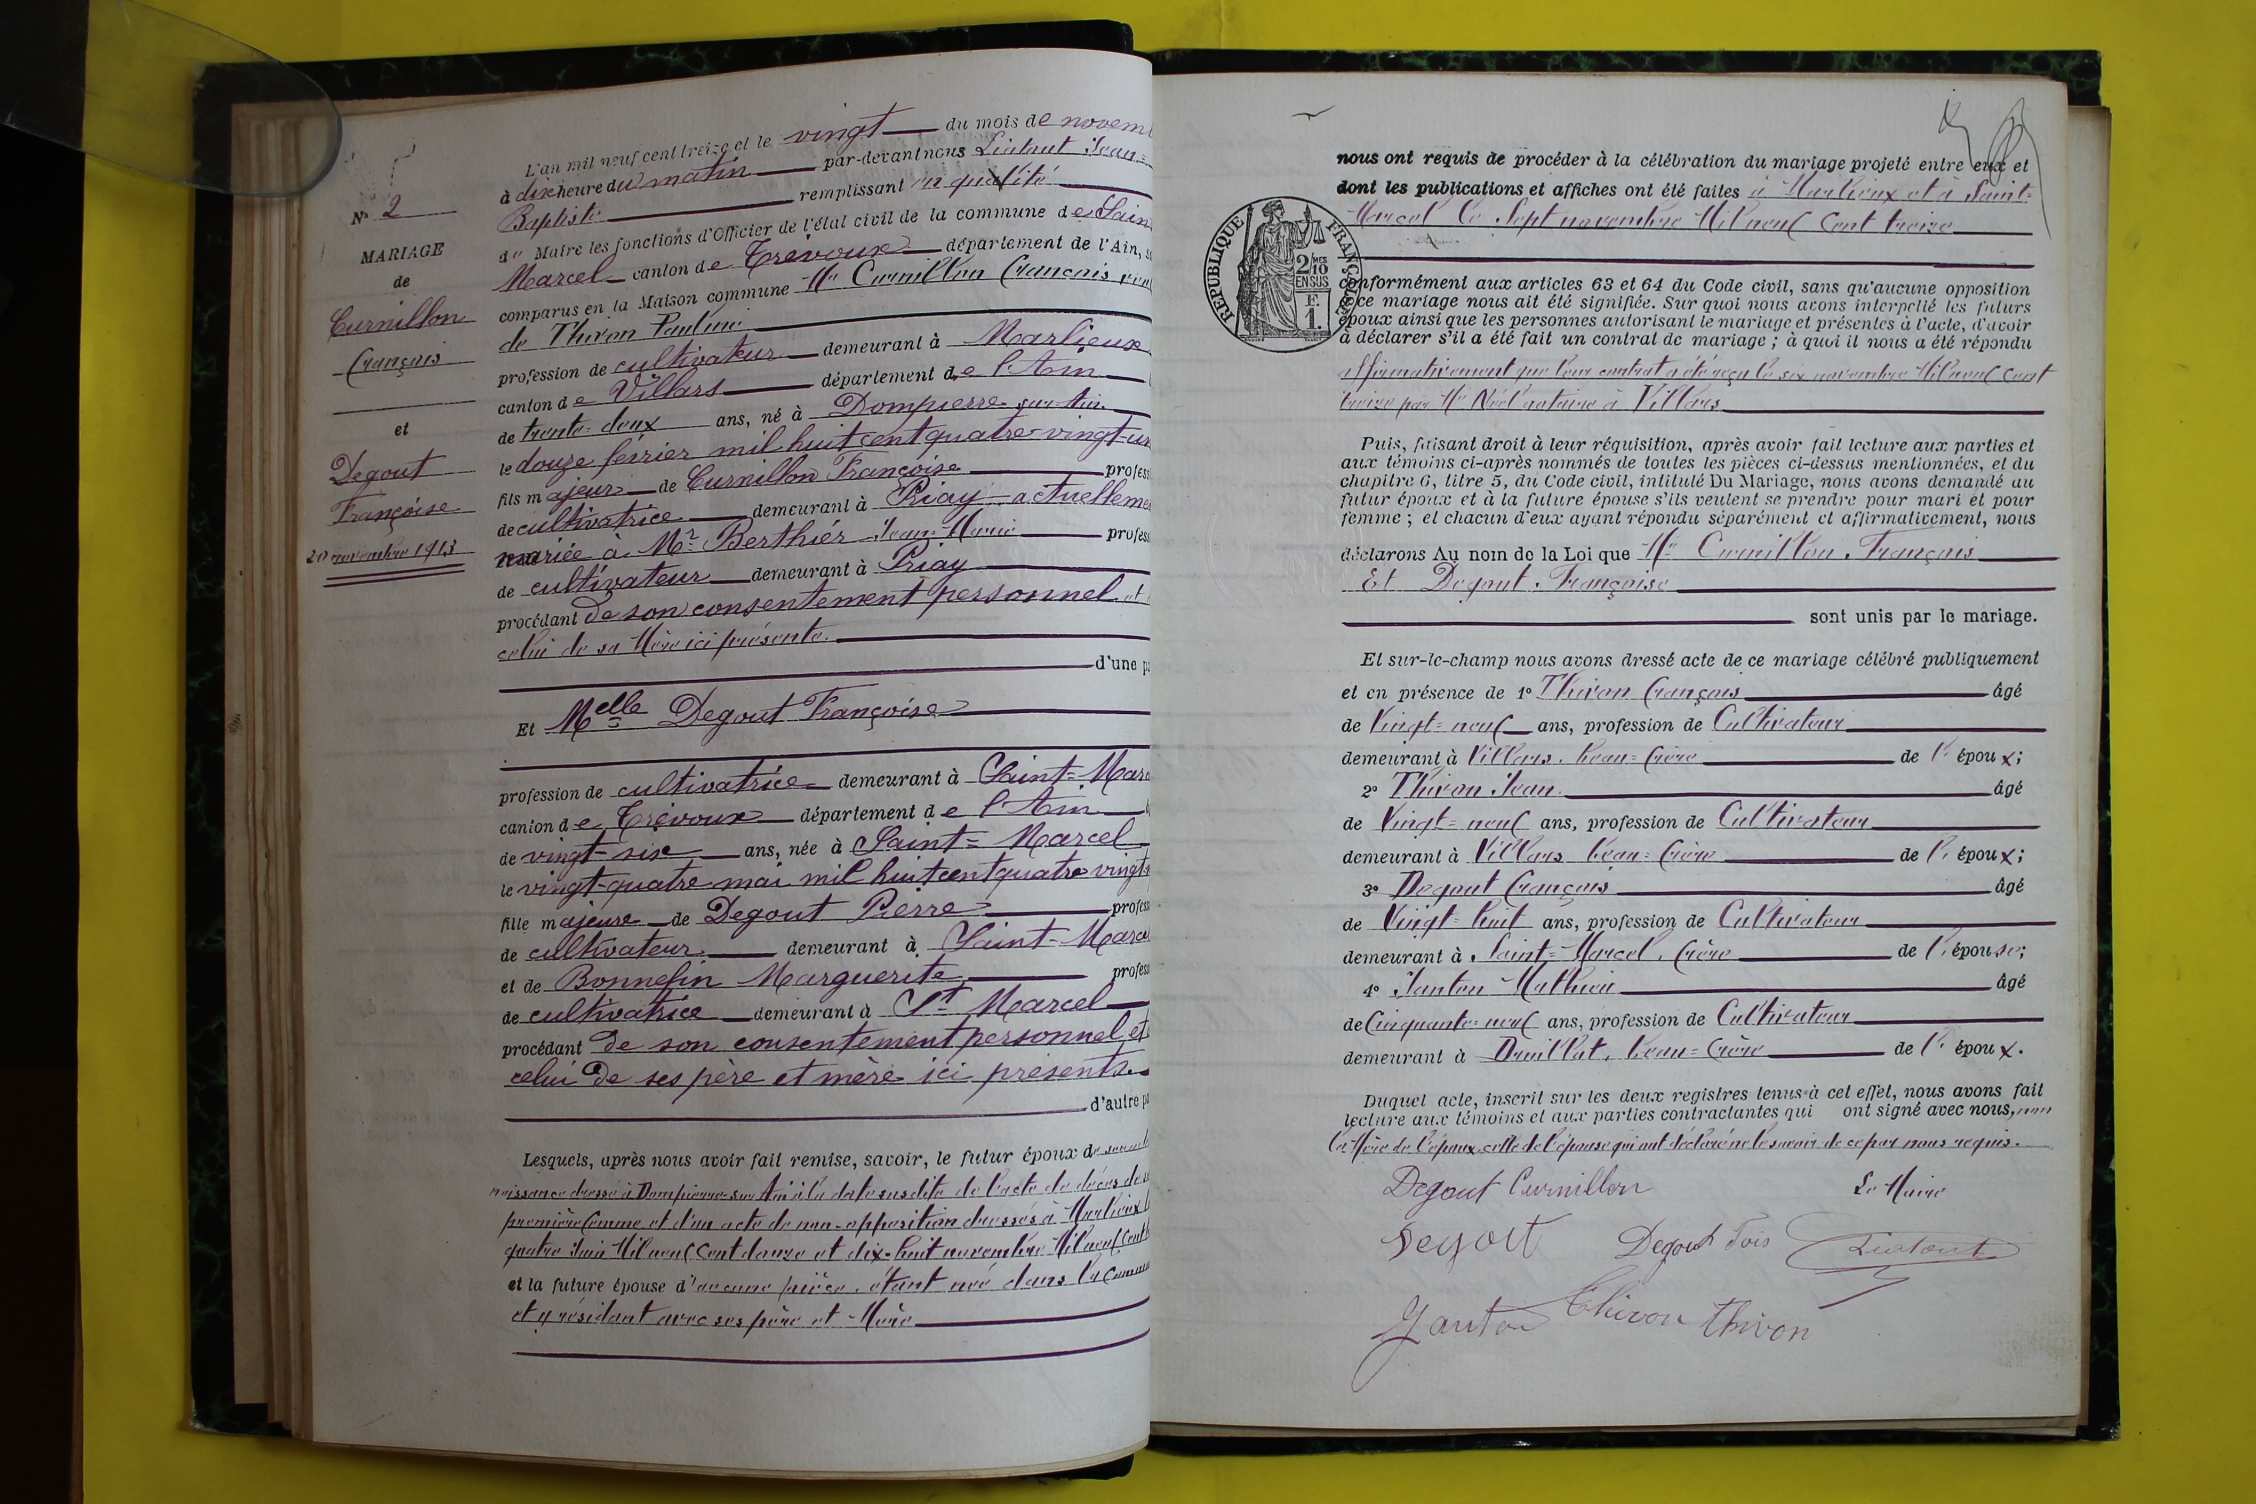 N° 2
MARIAGE
de
Curnillon
François
et
Degout
Françoise
20 novembre 1913
L'an mil neuf cent treize et le vingt du mois de novem
à dix heure du matin par-devant nous Liatout Jean=
Baptiste remplissant en qualité
de Maire les fonctions d'Officier de l'état civil de la commune de Sain
Marcel canton de Trévoux département de l'Ain, s
comparus en la Maison commune Mr Curnillon François veu
de Thivon Pauline
profession de cultivateur demeurant à Marlieux
canton de Villars département de l'Ain
de trente=deux ans, né à Dompierre sur Ain
le douze février mil huit cent quatre-vingt-un
fils majeur de Curnillon Françoise profess
de cultivatrice demeurant à Priay actuelleme
mariée à Mr Berthiér Jean=Marie profess
de cultivateur demeurant à Priay
procédant de son consentement personnel et
celui de sa Mère ici présente
d'une pa
Et Melle Degout Françoise
profession de cultivatrice demeurant à Saint=Marc
canton de Trévoux département de l'Ain
de vingt-six ans, née à Saint=Marcel
le vingt-quatre mai mil huit cent quatre vingt-
fille majeure de Degout Pierre profess
de cultivateur demeurant à Saint-Marce
et de Bonnefin Marguerite profess
de cultivatrice demeurant à St Marcel
procédant de son consentement personnel et
celui de ses père et mère ici présents.
d'autre pa
Lesquels, après nous avoir fait remise, savoir, le futur époux de son acte
naissance dressé à Dompierre-sur Ain à la date susdite de l'acte de décès de s
première femme et d'un acte de non-opposition dressés à Marlieux l
quatre Juin Mil neuf cent douze et dix-huit novembre Mil neuf cent t
et la future épouse d'aucune pièce, étant née dans la commune
et y résidant avec ses père et Mère
nous ont requis de procéder à la célébration du mariage projeté entre eux et
dont les publications et affiches ont été faites à Marlieux et à Saint=
Marcel le Sept novembre Mil neuf cent treize
RÉPUBLIQUE FRANÇAISE
2/10 MES
EN SUS
F.
1.
conformément aux articles 63 et 64 du Code civil, sans qu'aucune opposition
à ce mariage nous ait été signifiée. Sur quoi nous avons interpellé les futurs
époux ainsi que les personnes autorisant le mariage et présentes à l'acte, d'avoir
à déclarer s'il a été fait un contrat de mariage ; à quoi il nous a été répondu
affirmativement que leur contrat a été reçu le six novembre Mil neuf cent
treize par Me Noël notaire à Villars
Puis, faisant droit à leur réquisition, après avoir fait lecture aux parties et
aux témoins ci-après nommés de toutes les pièces ci-dessus mentionnées, et du
chapitre 6, titre 5, du Code civil, intitulé Du Mariage, nous avons demandé au
futur époux et à la future épouse s'ils veulent se prendre pour mari et pour
femme ; et chacun d'eux ayant répondu séparément et affirmativement, nous
déclarons Au nom de la Loi que Mr Curnillon François
Et Degout Françoise
sont unis par le mariage.
Et sur-le-champ nous avons dressé acte de ce mariage célébré publiquement
et en présence de 1° Thivon François âgé
de Vingt=neuf ans, profession de Cultivateur
demeurant à Villars, beau=frère de l'époux;
2° Thivon Jean âgé
de Vingt=neuf ans, profession de Cultivateur
demeurant à Villars beau=frère de l'époux;
3° Degout François âgé
de Vingt=huit ans, profession de Cultivateur
demeurant à Saint=Marcel, frère de l'épouse;
4° Janton Mathieu âgé
de Cinquante=neuf ans, profession de Cultivateur
demeurant à Druillat, beau=frère de l'époux.
Duquel acte, inscrit sur les deux registres tenus à cet effet, nous avons fait
lecture aux témoins et aux parties contractantes qui ont signé avec nous, non
la Mère de l'époux celle de l'épouse qui ont déclaré ne le savoir de ce par nous requis.
Degout Curnillon Le Maire
Degout Degout Fois Liatout
Janton Thivon Thivon